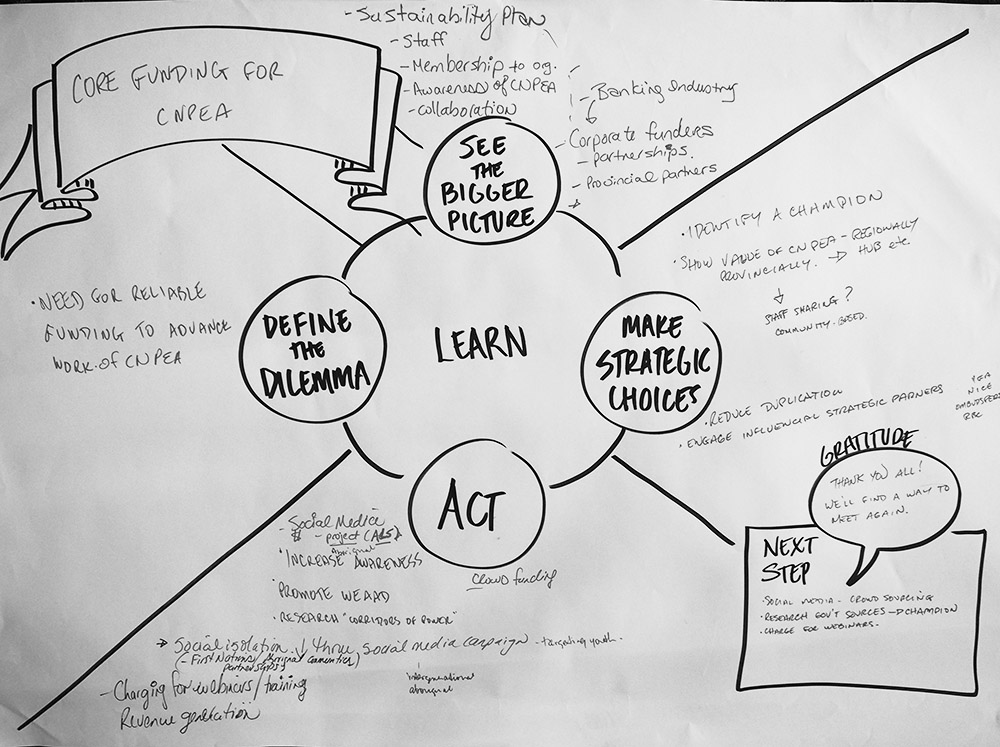 CORE FUNDING FOR
CNPEA
- Sustainability Plan
- Staff
- Membership to org.
- Awareness of CNPEA
- Collaboration
- Banking Industry
- Corporate funders
- partnerships.
- Provincial partners
SEE
THE
BIGGER
PICTURE
• IDENTIFY A CHAMPION
• SHOW VALUE OF CNPEA - REGIONALLY
PROVINCIALLY. → HUB etc.
STAFF SHARING?
COMMUNITY-BASED.
• NEED FOR RELIABLE
FUNDING TO ADVANCE
WORK OF CNPEA
DEFINE
THE
DILEMMA
LEARN
MAKE
STRATEGIC
CHOICES
• REDUCE DUPLICATION
• ENGAGE INFLUENCIAL STRATEGIC PARNERS
NICE
RBC
ACT
- Social Media
$ - project (ALS)
Aboriginal
• INCREASE AWARENESS
• PROMOTE WEAAD
• RESEARCH "CORRIDORS OF POWER"
Crowd funding
→ Social isolation ↓ threw social media campaign - targeting youth.
(- First Nations/
partnerships)
intergenerational
aboriginal
- Charging for webinars/training
Revenue generation
GRATITUDE
THANK YOU ALL!
WE'LL FIND A WAY TO
MEET AGAIN.
NEXT
STEP
• SOCIAL MEDIA - CROWD SOURCING
• RESEARCH GOV'T SOURCES → CHAMPION
• CHARGE FOR WEBINARS.